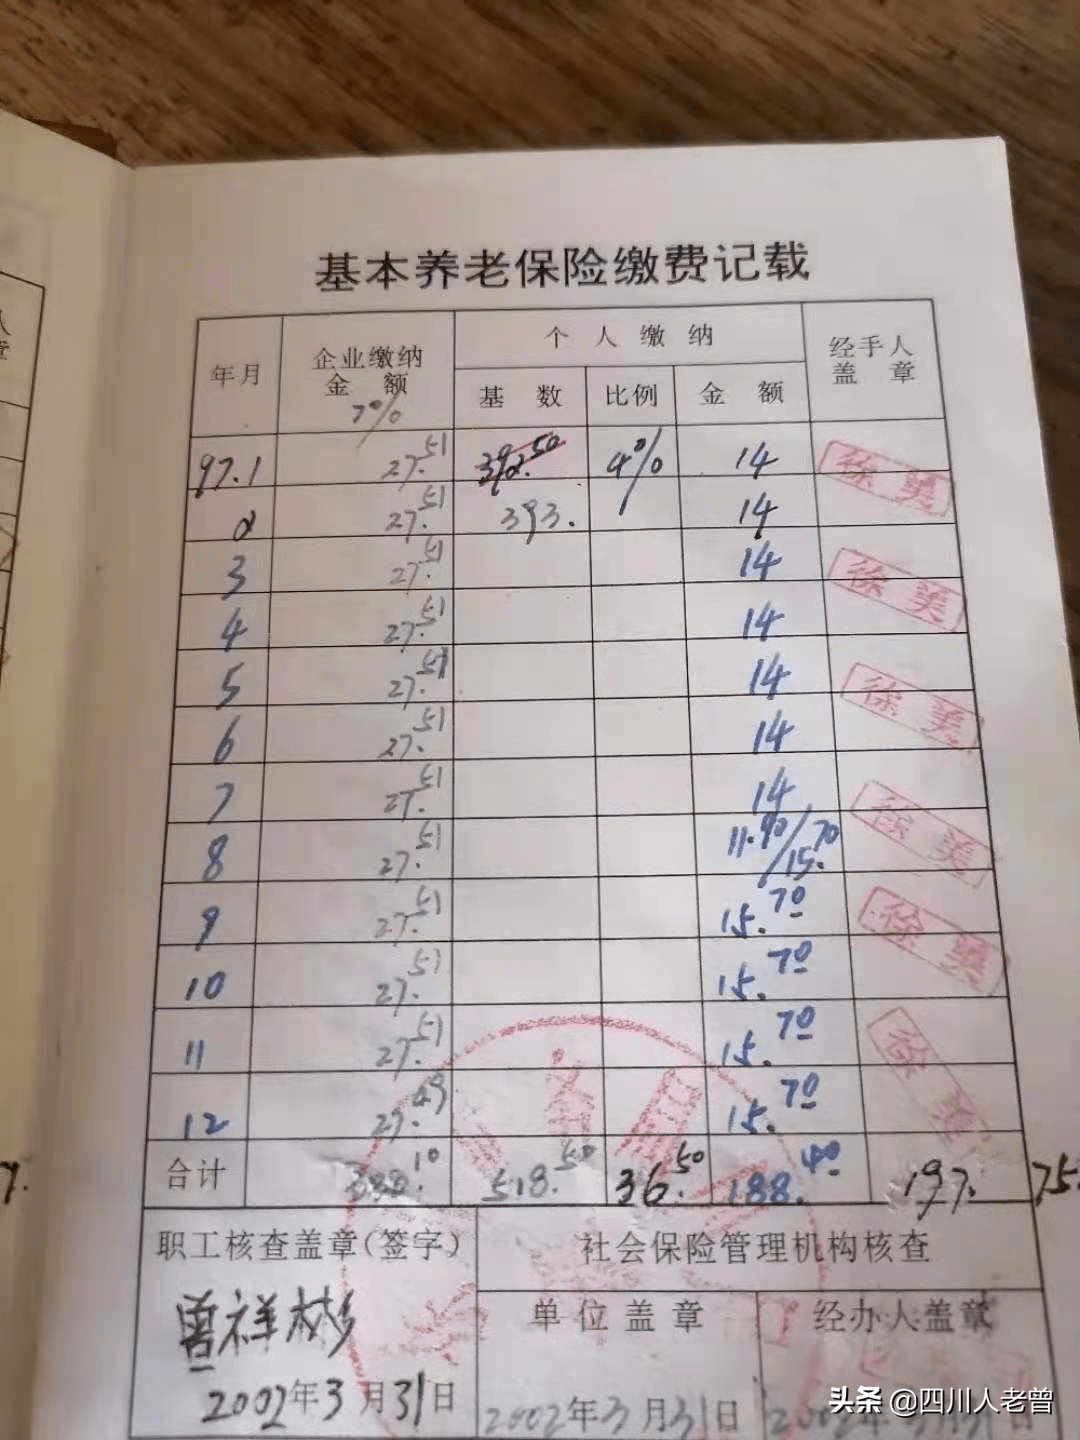 基本养老保险缴费记载
年月 企业缴纳金额 7% 个人缴纳 经手人盖章
基数 比例 金额
97.1 27.51 392.50 4% 14 徐昊
2 27.51 393. 14
3 27.51 14 徐昊
4 27.51 14
5 27.51 14 徐昊
6 27.51 14
7 27.51 14 徐昊
8 27.51 11.90/15.70
9 27.51 15.70 徐昊
10 27.51 15.70
11 27.51 15.70 徐昊
12 27.49 15.70
合计 .10 518.50 36.50 188.40 197. 75.
职工核查盖章(签字) 社会保险管理机构核查
单位盖章 经办人盖章
曾祥彬
2002年3月31日 2002年3月31日
头条 @四川人老曾